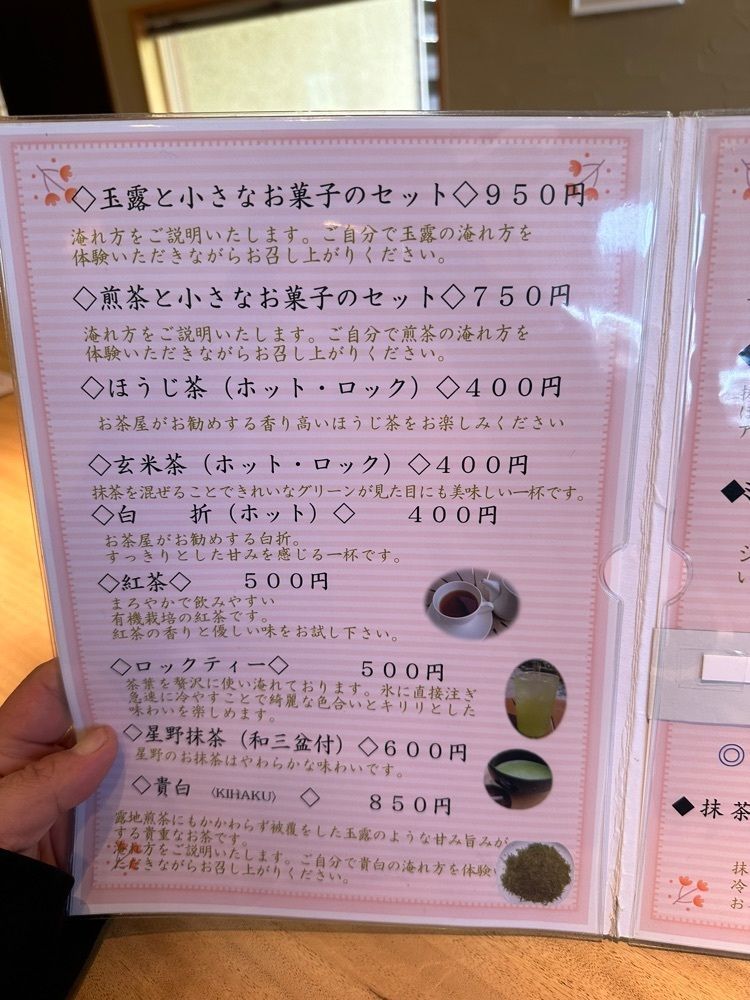 ◇玉露と小さなお菓子のセット◇950円
淹れ方をご説明いたします。ご自分で玉露の淹れ方を
体験いただきながらお召し上がりください。
◇煎茶と小さなお菓子のセット◇750円
淹れ方をご説明いたします。ご自分で煎茶の淹れ方を
体験いただきながらお召し上がりください。
◇ほうじ茶（ホット・ロック）◇400円
お茶屋がお勧めする香り高いほうじ茶をお楽しみください
◇玄米茶（ホット・ロック）◇400円
抹茶を混ぜることできれいなグリーンが見た目にも美味しい一杯です。
◇白　折（ホット）◇　400円
お茶屋がお勧めする白折。
すっきりとした甘みを感じる一杯です。
◇紅茶◇　500円
まろやかで飲みやすい
有機栽培の紅茶です。
紅茶の香りと優しい味をお試し下さい。
◇ロックティー◇　500円
茶葉を贅沢に使い淹れております。氷に直接注ぎ
急速に冷やすことで綺麗な色合いとキリリとした
味わいを楽しめます。
◇星野抹茶（和三盆付）◇600円
星野のお抹茶はやわらかな味わいです。
◇貴白〈KIHAKU〉◇　850円
露地煎茶にもかかわらず被覆をした玉露のような甘み旨みが
する貴重なお茶です。
淹れ方をご説明いたします。ご自分で貴白の淹れ方を体験い
ただきながらお召し上がりください。
◎
◆抹茶
抹
冷
お